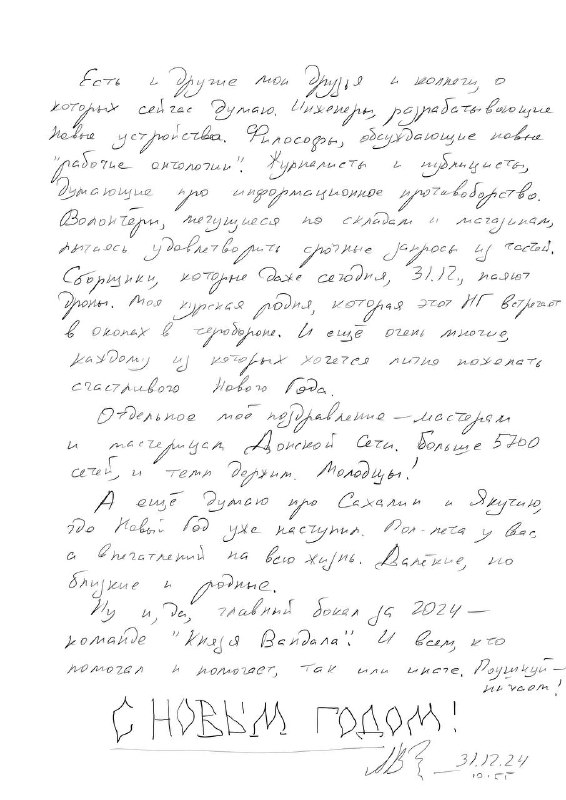 Есть и другие мои друзья и коллеги, о
которых сейчас думаю. Инженеры, разрабатывающие
новые устройства. Философы, обсуждающие новые
"рабочие онтологии". Журналисты и публицисты,
думающие про информационное противоборство.
Волонтёры, мечущиеся по складам и магазинам,
пытаясь удовлетворить срочные запросы из частей.
Сборщики, которые даже сегодня, 31.12., паяют
дроны. Моя курская родня, которая этот НГ встречает
в окопах в теробороне. И ещё очень многие,
каждому из которых хочется лично пожелать
счастливого Нового Года.
Отдельное моё поздравление — мастерам
и мастерицам Донской Сети. Больше 5700
сетей, и темп держим. Молодцы!
А ещё думаю про Сахалин и Якутию,
где Новый Год уже наступил. Пол-лета у вас
а впечатлений на всю жизнь. Далёкие, но
близкие и родные.
Ну и, да, главный бокал за 2024 —
команде "Князя Вандала". И всем, кто
помогал и помогает, так или иначе.
С НОВЫМ ГОДОМ!
31.12.24